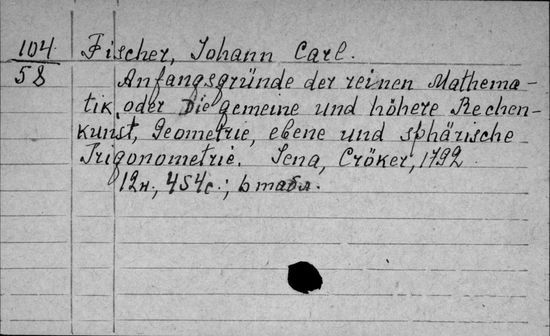 104 Fischer, Johann Carl.
58 Anfangsgründe der reinen Mathema-
tik, oder Die gemeine und höhere Rechen-
kunst, Geometrie, ebene und sphärische
Trigonometrie. Jena, Cröker, 1792
12н., 454с.; 6 табл.